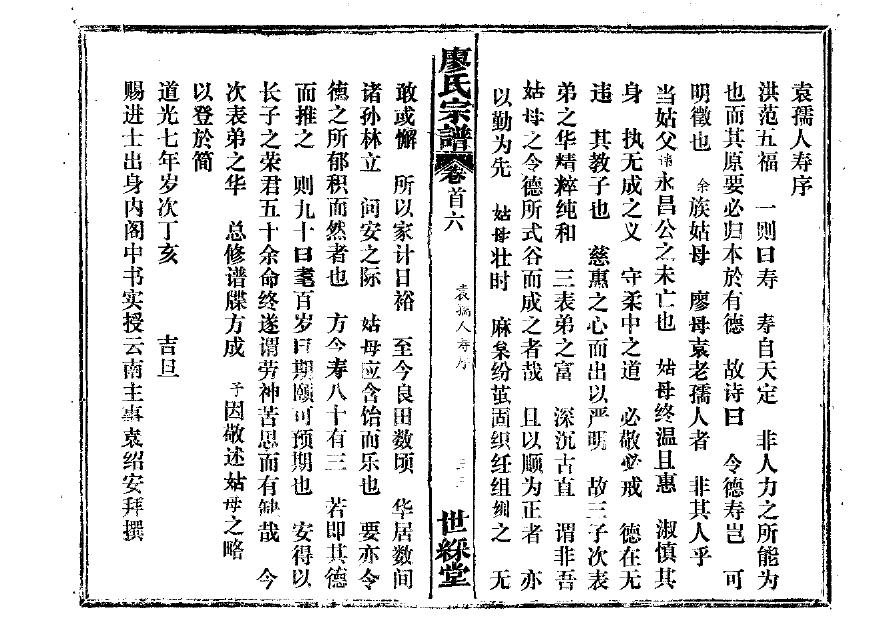 袁孺人寿序
洪范五福 一则曰寿 寿自天定 非人力之所能为
也而其原要必归本於有德 故诗曰 令德寿岂 可
明徵也 余族姑母 廖母袁老孺人者 非其人乎
当姑父讳永昌公之未亡也 姑母终温且惠 淑慎其
身 执无成之义 守柔中之道 必敬必戒 德在无
违 其教子也 慈惠之心而出以严明 故三子次表
弟之华精粹纯和 三表弟之富 深沉古直 谓非吾
姑母之令德所式谷而成之者哉 且以顺为正者 亦
以勤为先 姑母壮时 麻枲纷茧固织纴组紃之 无
廖氏宗譜 卷首六 袁孺人寿序 世綵堂
敢或懈 所以家计日裕 至今良田数顷 华居数间
诸孙林立 问安之际 姑母应含饴而乐也 要亦令
德之所郁积而然者也 方今寿八十有三 若即其德
而推之 则九十曰耄百岁曰期颐可预期也 安得以
长子之荣君五十余命终遂谓劳神苦思而有缺哉 今
次表弟之华 总修谱牒方成 予因敬述姑母之略
以登於简
道光七年岁次丁亥 吉旦
赐进士出身内阁中书实授云南主事袁绍安拜撰